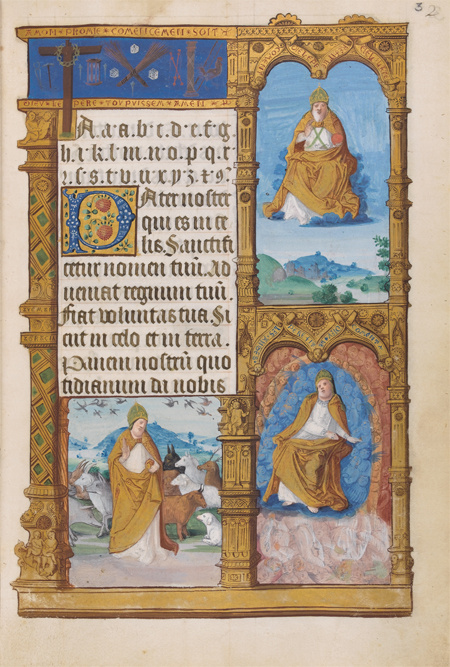 COMENCEMEN SOIT
AMEN
A. a. b. c. d. e. f. g.
h. i. k. l. m. n. o. p. q. r.
ſ. s. t. v. u. x. y. z. &. 9.
Pater noster
qui es in ce
lis. Sanctifi
cetur nomen tuũ. Ad
ueniat regnum tuũ.
Fiat voluntas tua. Si
cut in celo et in terra.
Panem nostrũ quo
tidianum da nobis